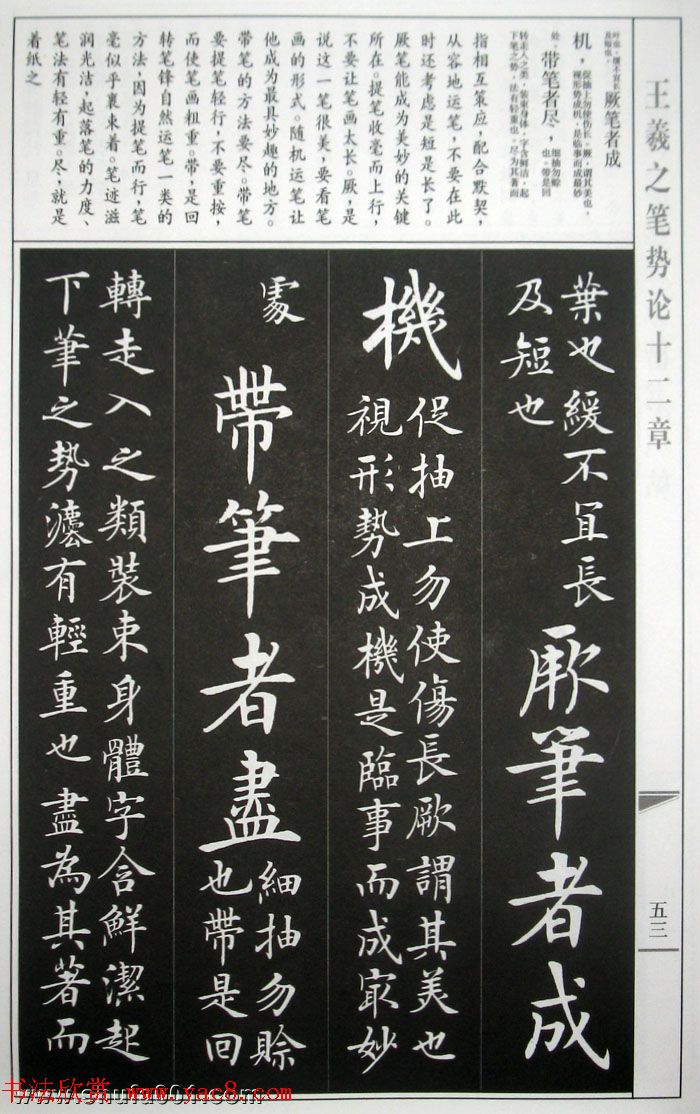 王羲之笔势论十二章
五三
叶也，缓不宜长
及短也。
厥笔者成
机，
促抽上勿使伤长，厥，谓其美也，
视形势成机，是临事而成最妙
处。带笔者尽，
细抽勿赊
也。带是回
转走入之类，装束身体，字含鲜洁，起
下笔之势，法有轻重也。尽为其著而
指相互策应，配合默契，
从容地运笔，不要在此
时还考虑是短是长了。
厥笔能成为美妙的关键
所在。提笔收毫而上行，
不要让笔画太长。厥，是
说这一笔很美，要看笔
画的形式。随机运笔让
他成为最具妙趣的地方。
带笔的方法要尽。带笔
要提笔轻行，不要重按，
而使笔画粗重。带，是回
转笔锋自然运笔一类的
方法，因为提笔而行，笔
毫似乎裹束着。笔迹滋
润光洁，起落笔的力度、
笔法有轻有重。尽，就是
着纸之
葉也緩不宜長
及短也
厥筆者成
機
促抽上勿使傷長厥謂其美也
視形勢成機是臨事而成㝡妙
處
帶筆者盡
細抽勿賒
也帶是回
轉走入之類裝束身體字含鮮潔起
下筆之勢灋有輕重也盡為其著而
书法欣赏 www.yac8.com